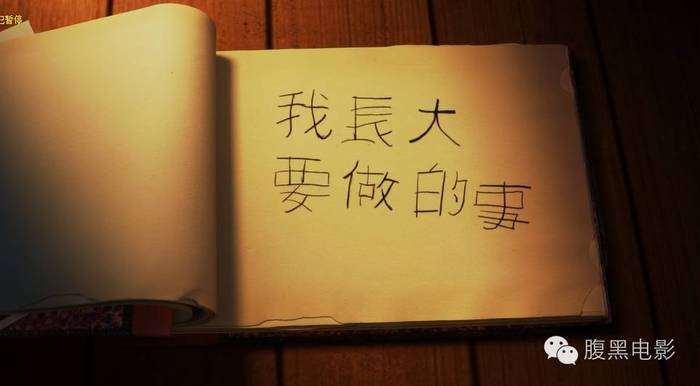 已暂停
我長大
要做的事
腹黑电影